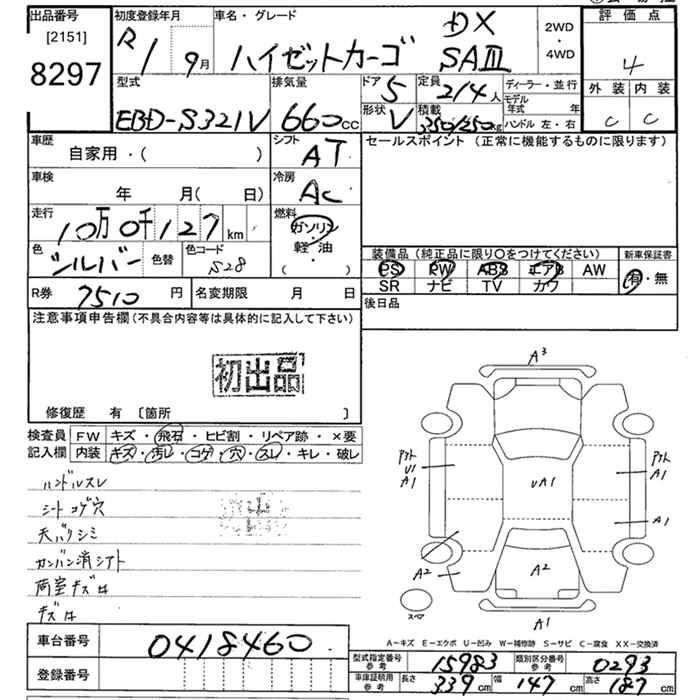 出品番号
[2151]
8297
初度登録年月
R1 9月
車名・グレード
ハイゼットカーゴ
DX
SAIII
2WD
・
4WD
評価点
4
外装 内装
C C
型式
EBD-S321V
排気量
660cc
ドア 5
形状 V
定員 2/4人
積載 350/250kg
ディーラー・並行
モデル年式 年
ハンドル 左・右
車歴
自家用・( )
シフト AT
セールスポイント (正常に機能するものに限ります)
車検
年 月( 日)
冷房 AC
走行
10万0千127 km
燃料
ガソリン
・
軽・油
( )
色
シルバー
色替
色コード
S28
装備品 (純正品に限り○をつけてください)
新車保証書
PS PW ABS エアB AW
SR ナビ TV カワ
有・無
R券 7510円
名変期限 月 日
後日品
注意事項申告欄 (不具合内容等は具体的に記入して下さい)
初出品
修復歴 有 〔箇所 〕
検査員
記入欄
FW キズ・飛石・ヒビ割・リペア跡・×要
内装 キズ・汚レ・コゲ・穴・スレ・キレ・破レ
ハンドルスレ
シートコゲ穴
天バリシミ
カンバン消シアト
荷室キズ
キズ
A3
UA1
U1
A1
A1
A1
A2
A2
A1
スペア
A-キズ E-エクボ U-凹み W-補修跡 S-サビ C-腐食 XX-交換済
車台番号
0418460
登録番号
型式指定番号
参考
15983
類別区分番号
参考
0293
車庫証明用
参考
長さ 339cm 幅 147cm 高さ 187cm